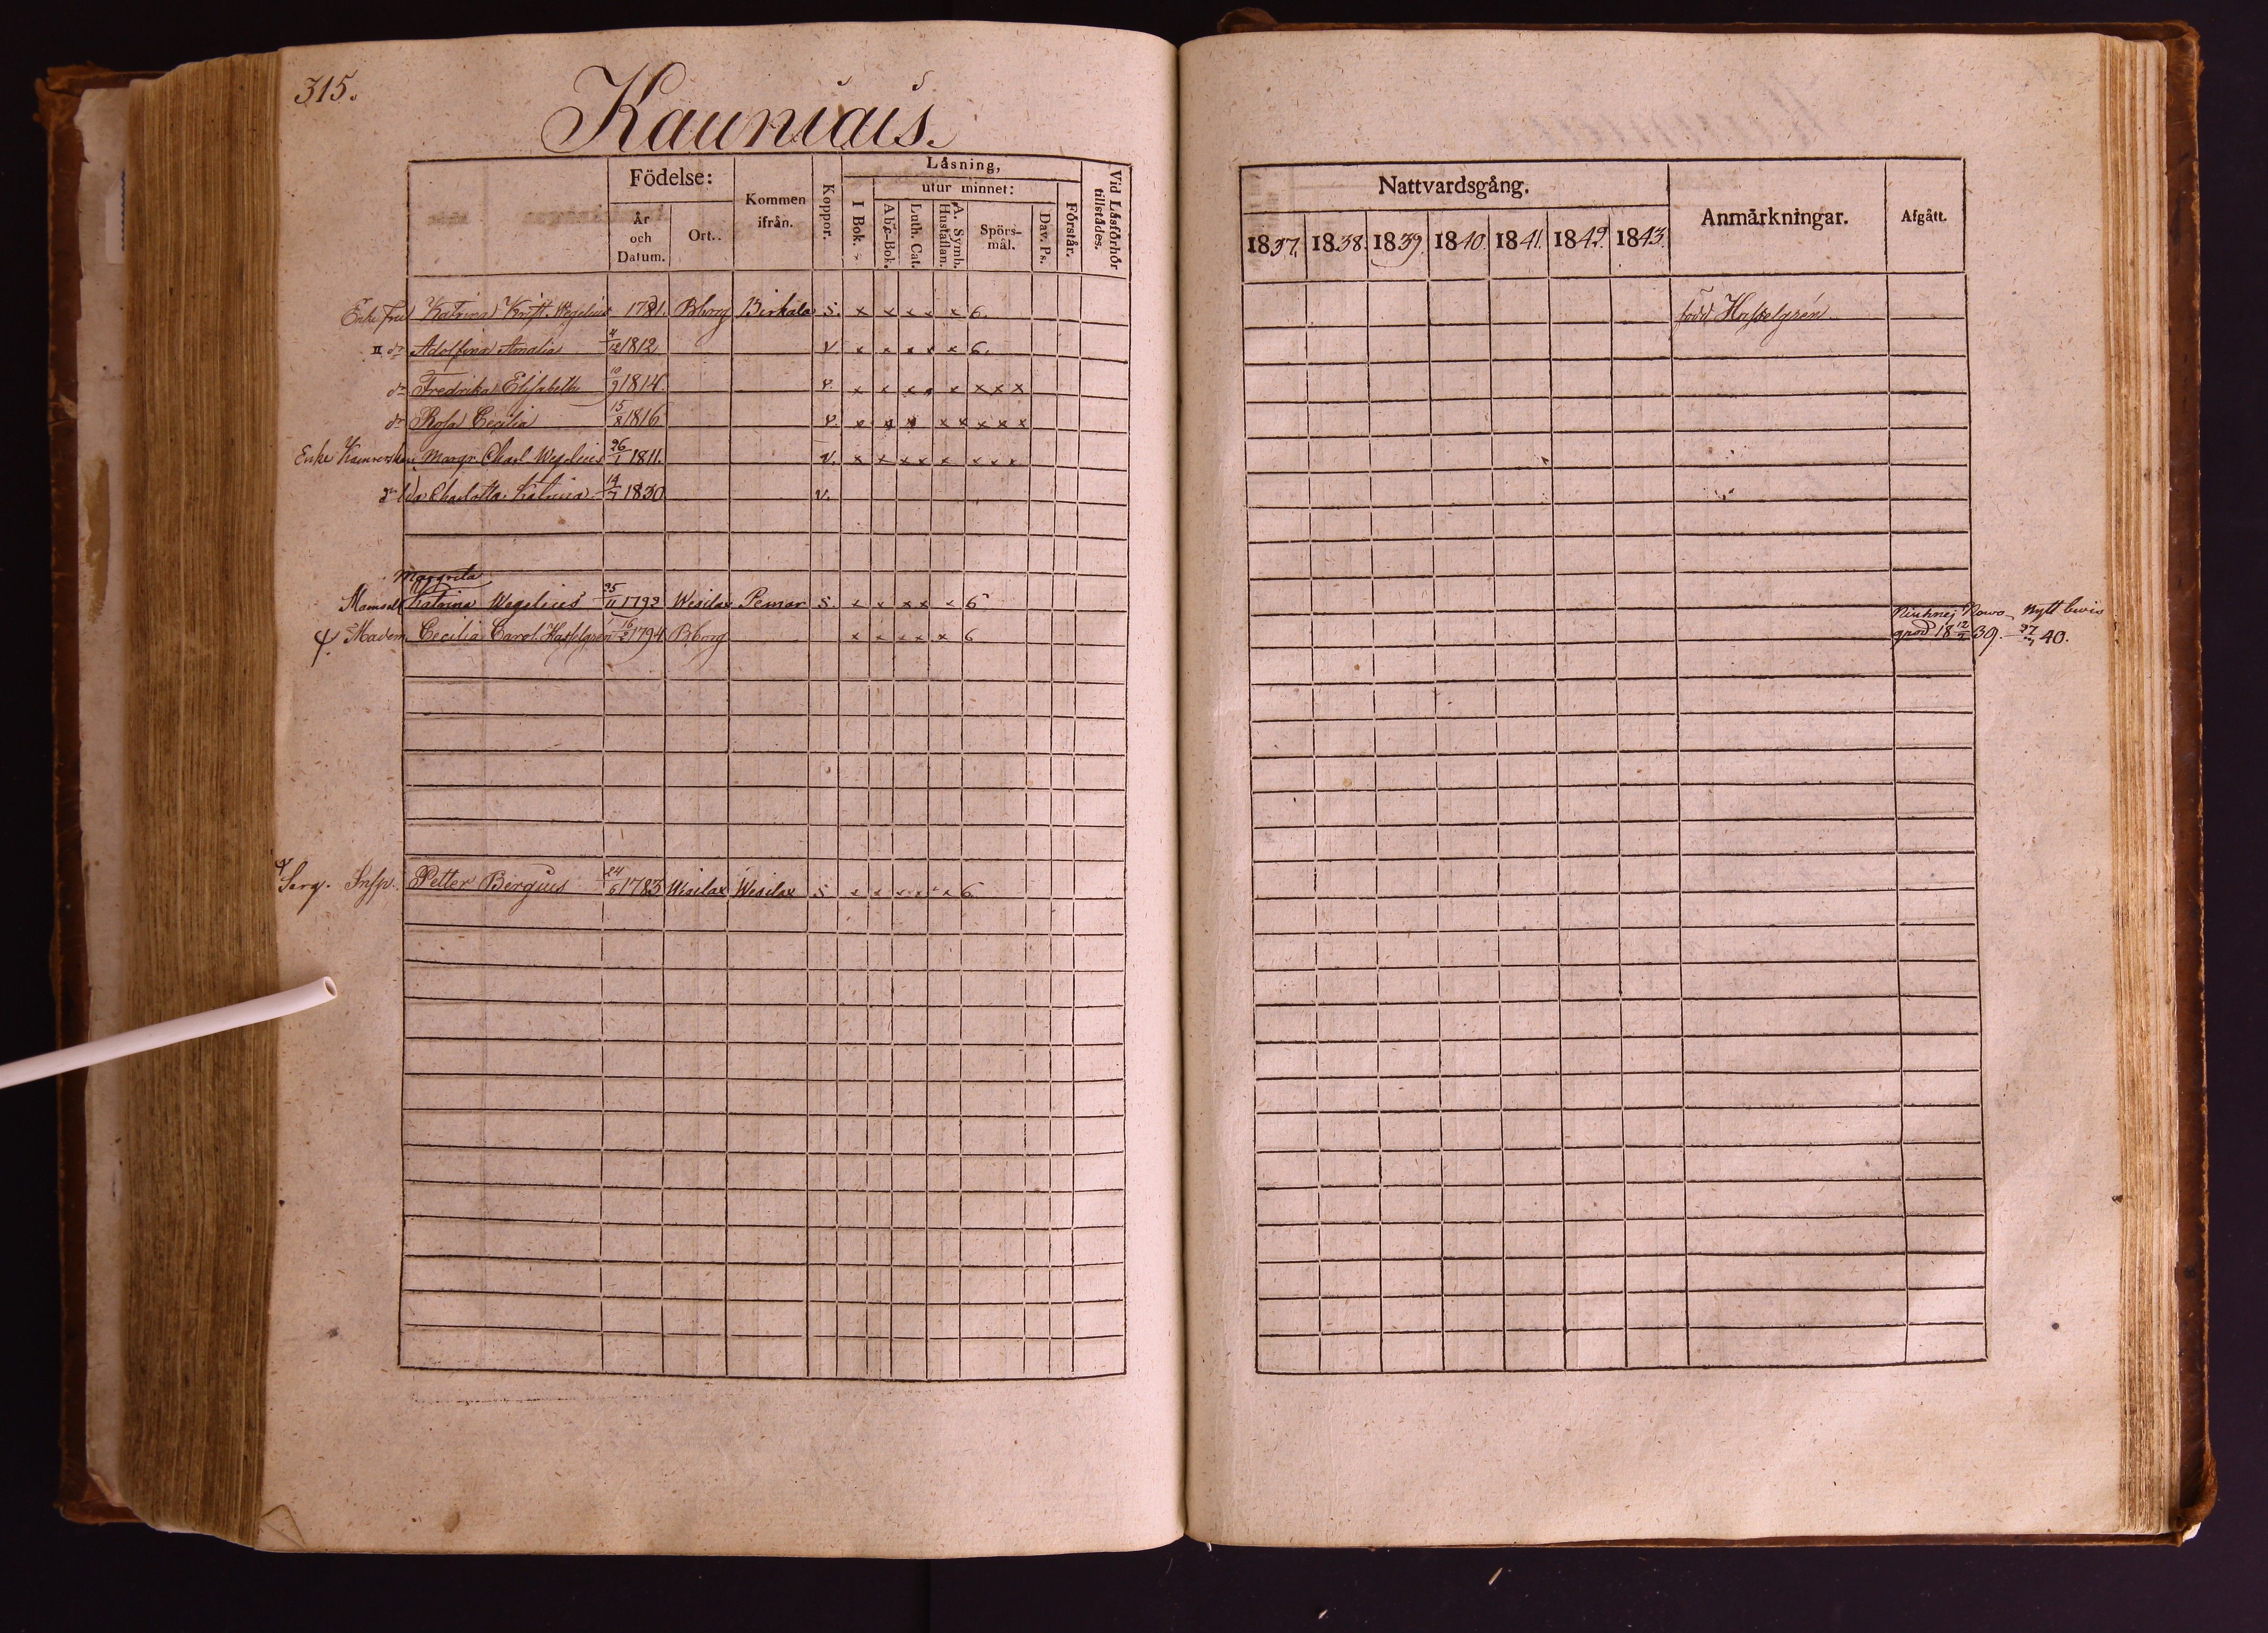 315.
Kauniais.
Födelse:
Kommen ifrån.
Koppor.
Läsning,
I Bok.
utur minnet:
Abc-Bok.
Luth. Cat.
A. Symb. Hustaflan.
Spörsmål.
Dav. Ps.
Förstår.
Vid Läsförhör tillstådes.
År och Datum.
Ort.
Enke Fru Katrina Krist. Wegelius 1781. Bborg Birkala S. x x x x x 6.
II dr Adolfina Amalia 4/12 1812 V x x x x x 6.
dr Fredrika Elisabeth 10/9 1814. V. x x x x x x x x
dr Rosa Cecilia 15/8 1816 V. x x x x x x x x
Enke Kamrerskan Margr. Charl. Wegelius 26/1 1811. V. x x x x x x x x
dr Ida Charlotta Katrina 14/7 1830 V.
Margreta
Mamsell Katrina Wegelius 25/11 1792 Wesilax Pemar S. x x x x x 6
Madem. Cecilia Carol. Hasselgren 16/2 1794 Bborg x x x x x 6
Serg. Insp. Petter Bergius 24/6 1783 Wesilax Wesilax S x x x x x 6.
Nattvardsgång.
Anmärkningar.
Afgått.
1837. 1838. 1839. 1840. 1841. 1842. 1843.
född Hasselgrén
Nytt bevis
18 12/2 39. 27/ 40.